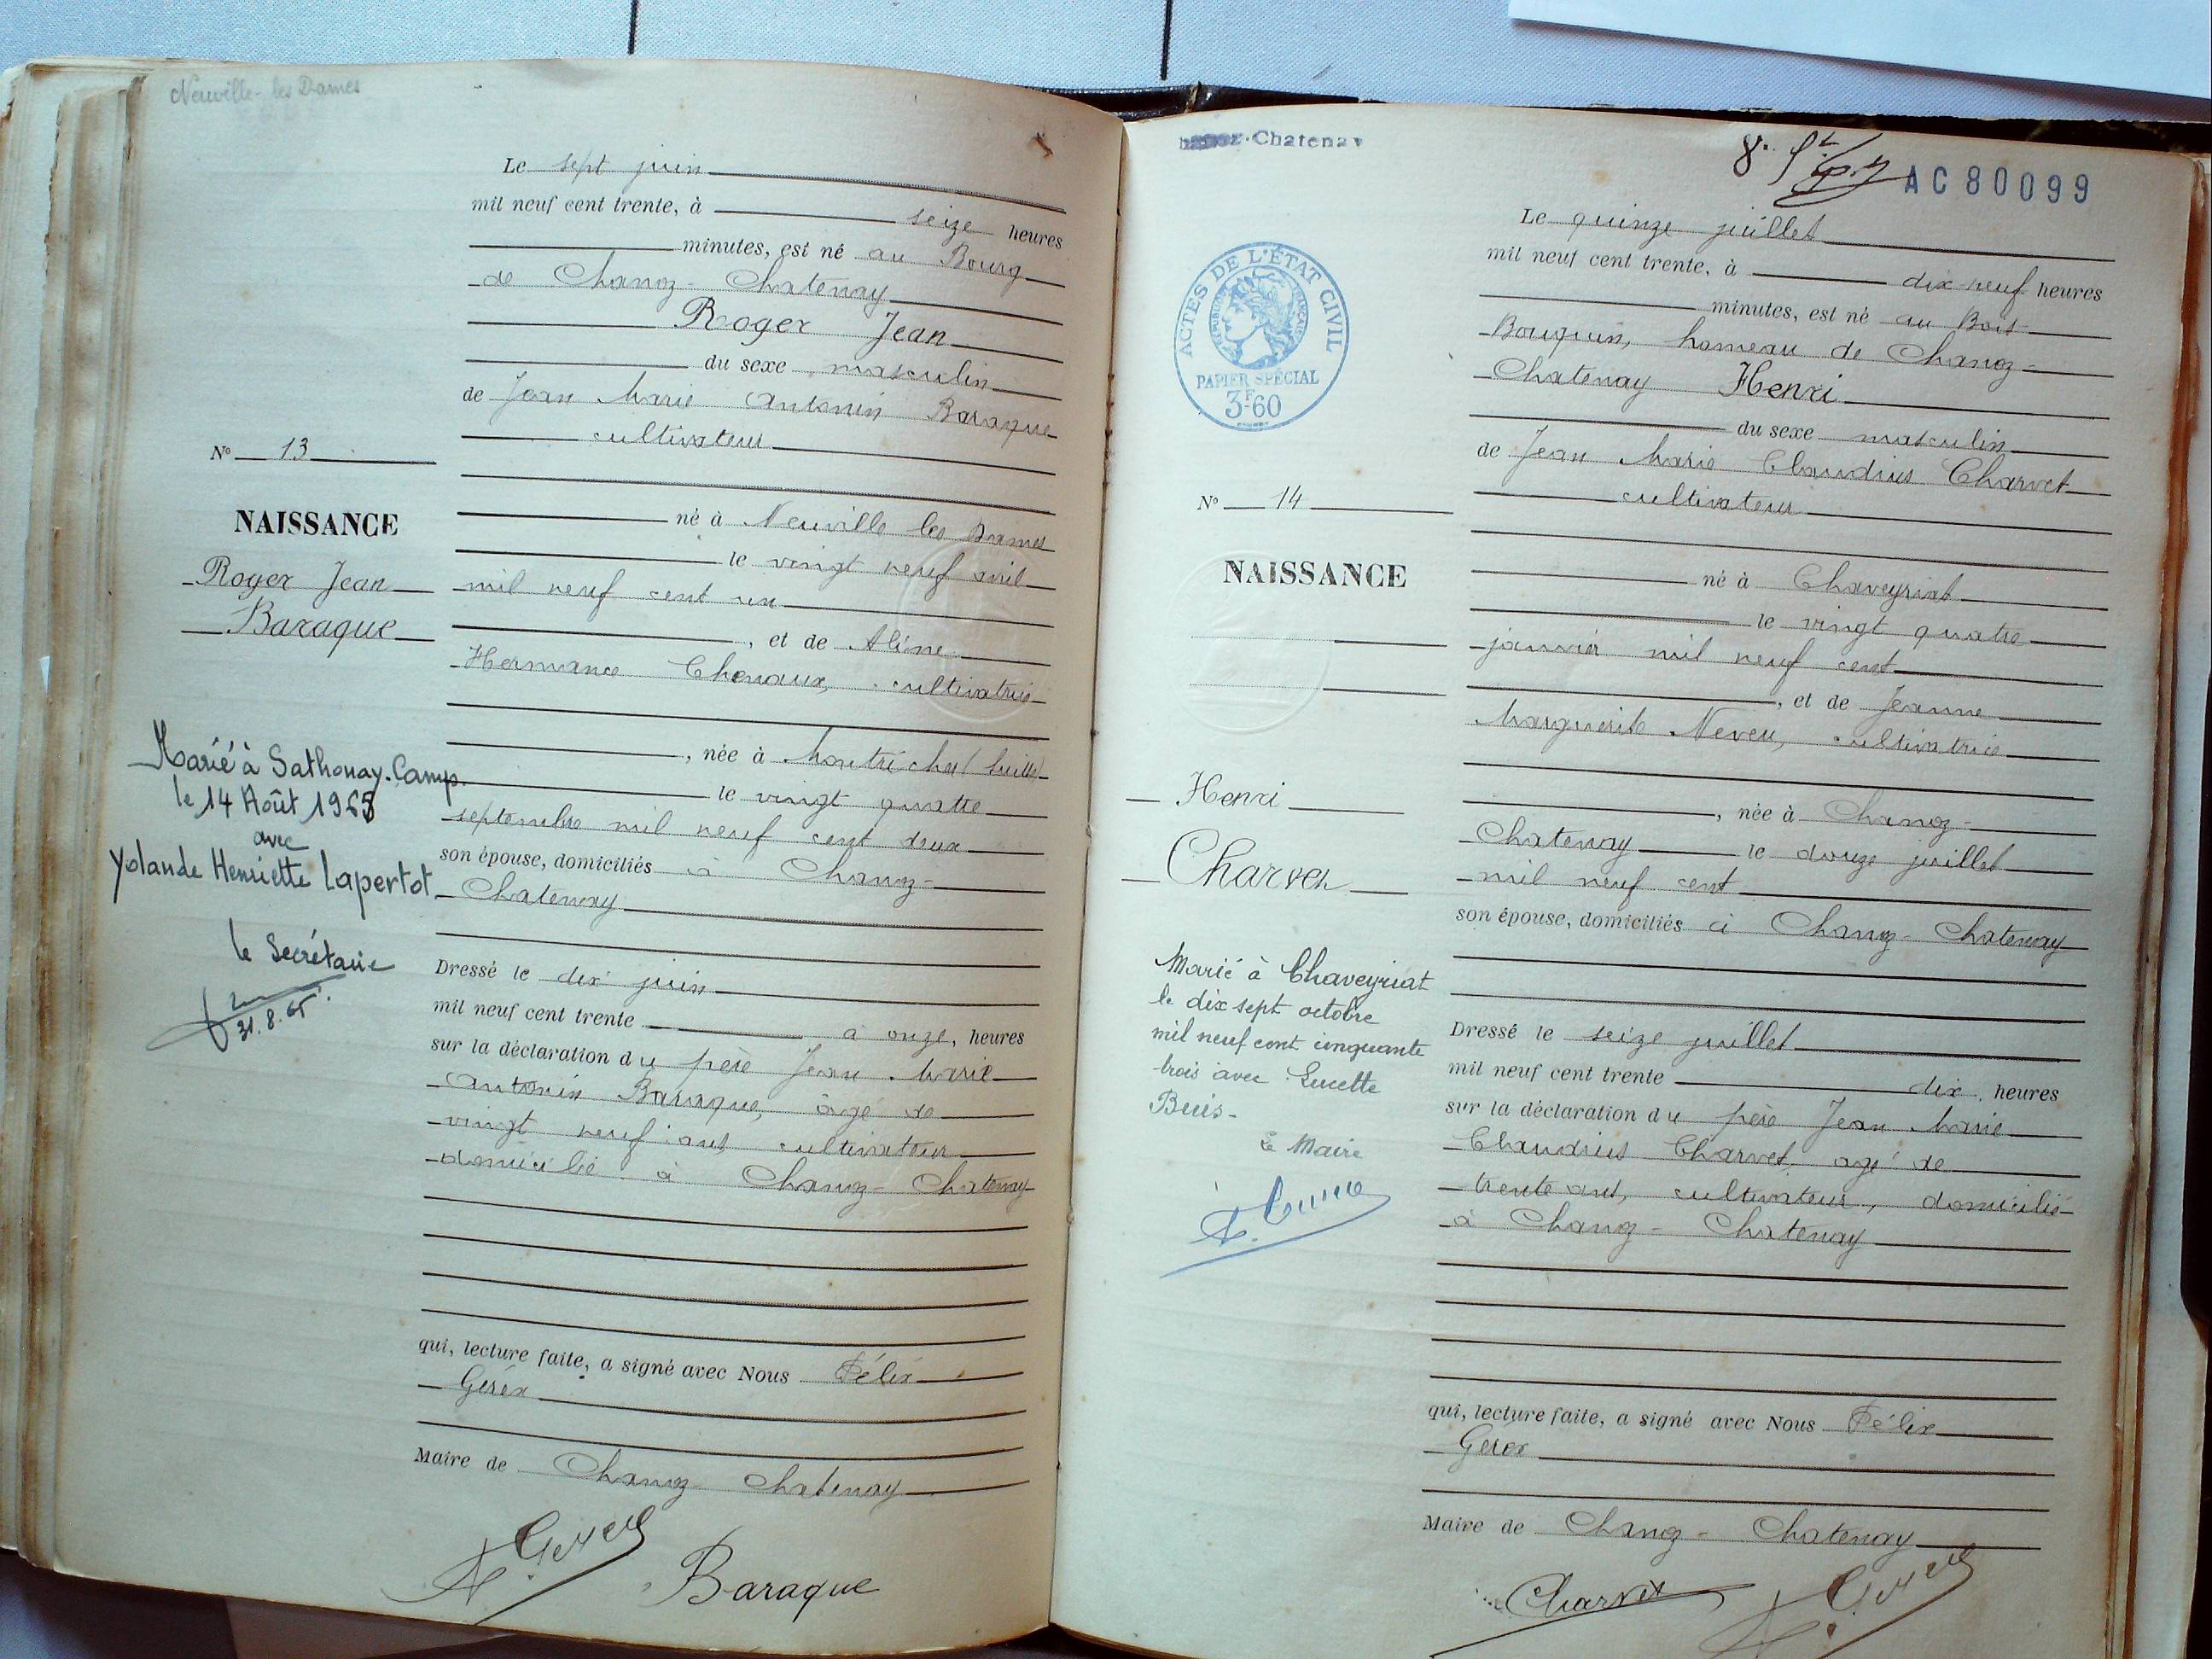 Neuville-les Dames
Le sept juin
mil neuf cent trente, à seize heures
minutes, est né au Bourg
de Chanoz-Chatenay
Roger Jean
du sexe masculin
de Jean Marie Antonin Baraque
cultivateur
né à Neuville les Dames
le vingt neuf avril
mil neuf cent un
, et de Aline
Hermance Chenaux, cultivatrice
, née à Montrichel (Suisse)
le vingt quatre
septembre mil neuf cent deux
son épouse, domiciliés à Chanoz-
Chatenay
Dressé le dix juin
mil neuf cent trente à onze, heures
sur la déclaration du père Jean Marie
Antonin Baraque, âgé de
vingt neuf ans cultivateur
domicilié à Chanoz-Chatenay
qui, lecture faite, a signé avec Nous Félix
Gérex
Maire de Chanoz-Chatenay
Baraque
N° 13
NAISSANCE
Roger Jean
Baraque
Marié à Sathonay-Camp.
le 14 Août 1965
avec
Yolande Henriette Lapertot
le Secrétaire
31.8.65
-Chatenay
8
AC80099
ACTES DE L'ÉTAT CIVIL
RÉPUBLIQUE FRANÇAISE
PAPIER SPÉCIAL
3F60
Le quinze juillet
mil neuf cent trente, à dix-neuf heures
minutes, est né au Bois
Bouquin, hameau de Chanoz-
Chatenay Henri
du sexe masculin
de Jean Marie Claudius Charvet
cultivateur
né à Chaveyriat
le vingt quatre
janvier mil neuf cent
, et de Jeanne
Marguerite Neveu, cultivatrice
, née à Chanoz-
Chatenay le douze juillet
mil neuf cent
son épouse, domiciliés à Chanoz-Chatenay
Dressé le seize juillet
mil neuf cent trente dix, heures
sur la déclaration du père Jean Marie
Claudius Charvet, agé de
trente ans, cultivateur, domicilié
à Chanoz-Chatenay
qui, lecture faite, a signé avec Nous Félix
Gérex
Maire de Chanoz-Chatenay
Charvet
N° 14
NAISSANCE
Henri
Charvet
Marié à Chaveyriat
le dix sept octobre
mil neuf cent cinquante
trois avec Lucette
Buis-
Le Maire